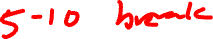 5-10 break